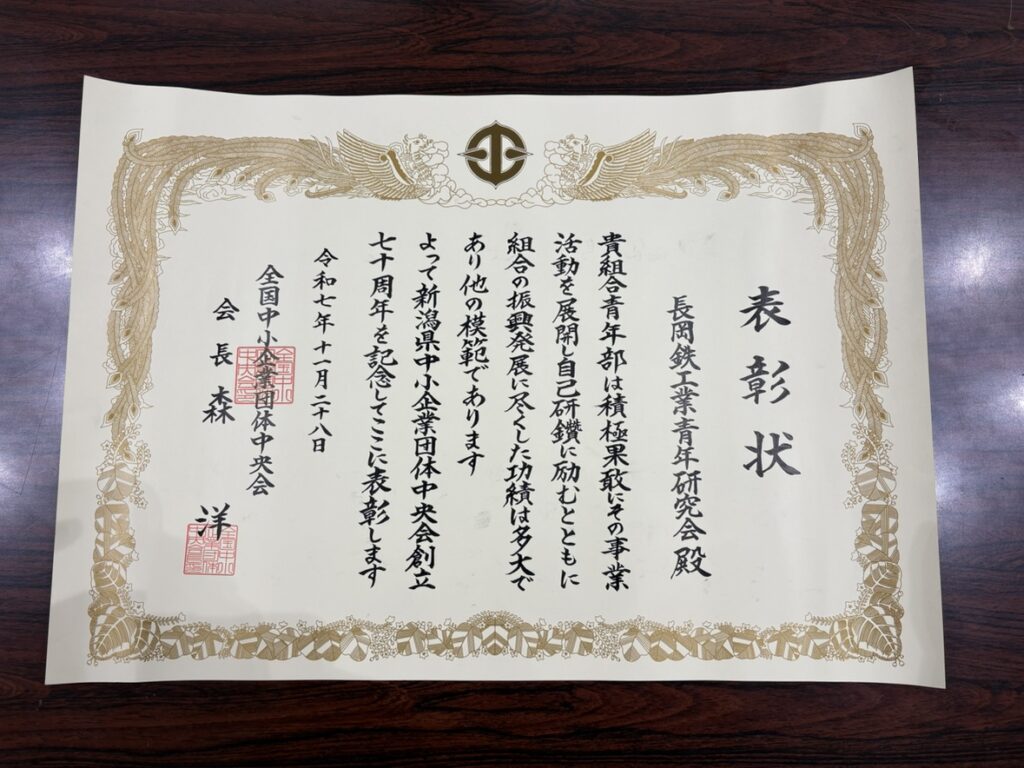 表彰状
長岡鉄工業青年研究会殿
貴組合青年部は積極果敢にその事業
活動を展開し自己研鑽に励むとともに
組合の振興発展に尽くした功績は多大で
あり他の模範であります
よって新潟県中小企業団体中央会創立
七十周年を記念してここに表彰します
令和七年十一月二十八日
全国中小企業団体中央会
会長 森 洋